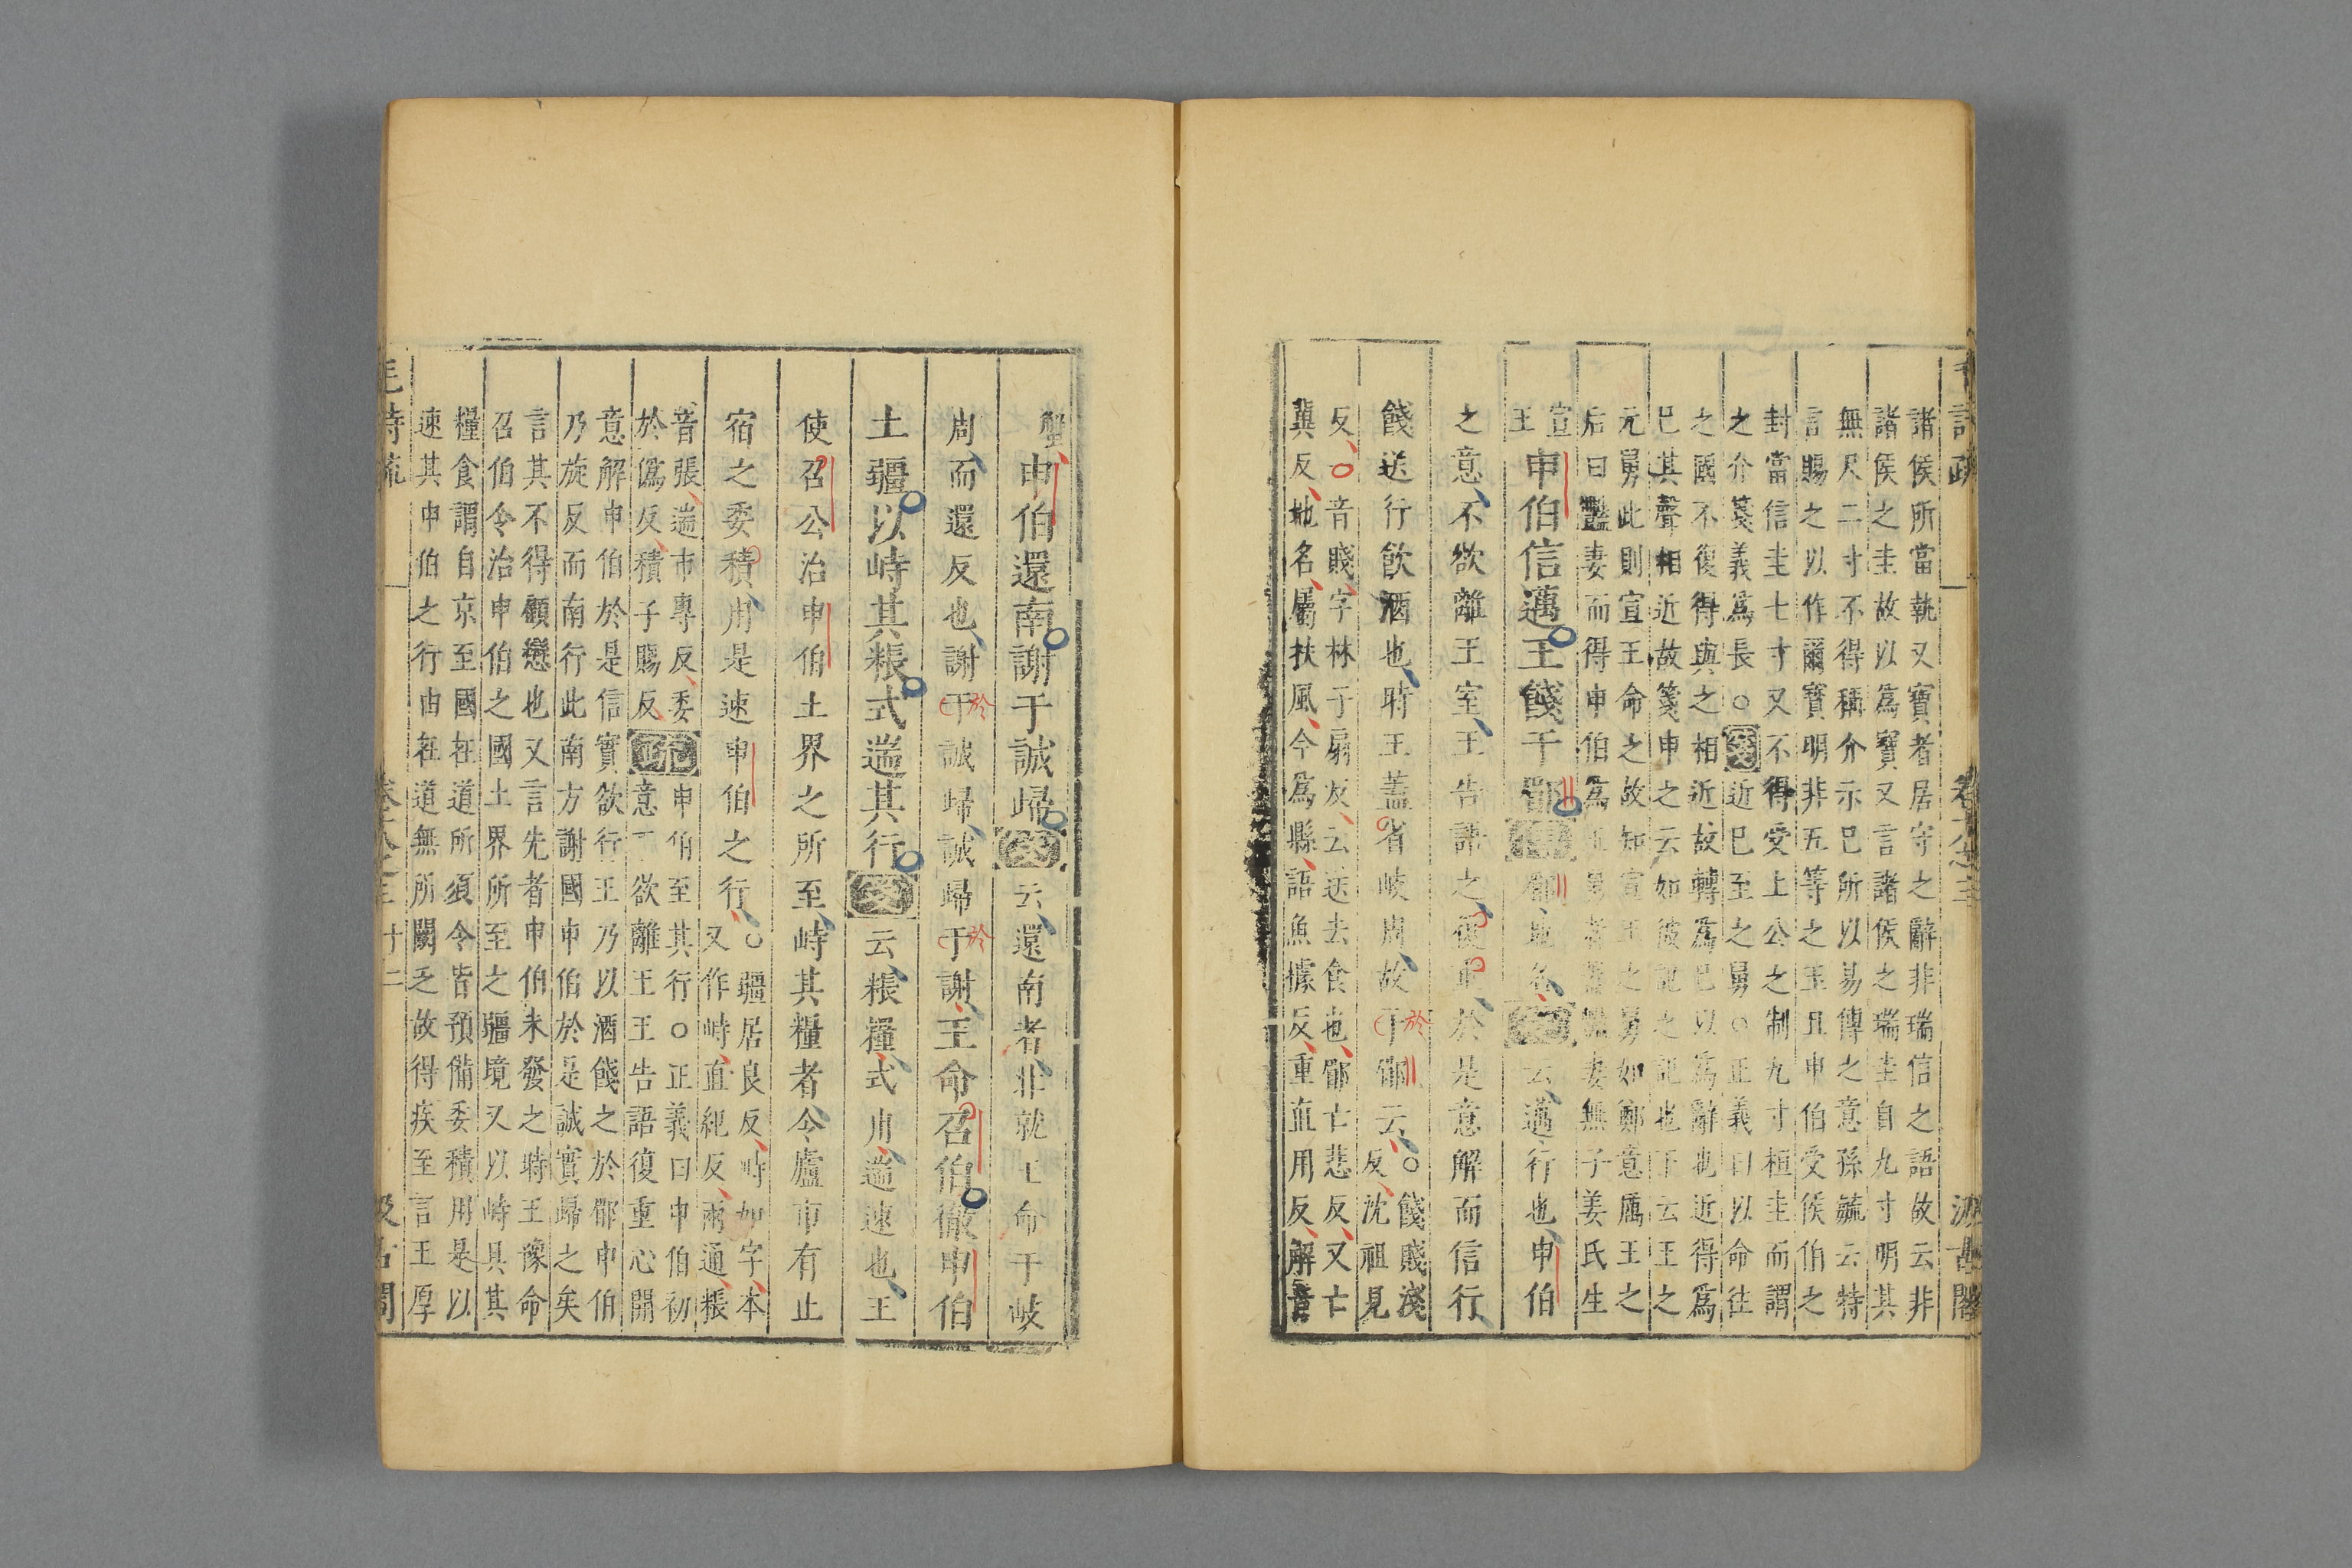 諸侯所當執又寶者居守之辭非瑞信之語故云非
諸侯之圭故以為寶又言諸侯之瑞圭自九寸明其
無尺二寸不得稱介示巳所以易傳之意孫毓云特
言賜之以作爾寶明非五等之玉且申伯受侯伯之
封當信圭七寸又不得受上公之制九寸桓圭而謂
之介箋義為長○箋近巳至之舅○正義曰以命往
之國不復得與之相近故轉為巳以為辭也近得為
巳其聲相近故箋申之云如彼記之記也下云王之
元舅此則宣王命之故知宣王之舅如鄭意厲王之
后曰豔妻而得申伯為王舅者蓋豔妻無子姜氏生
宣
王
申伯信邁王餞于郿傳郿地名箋云邁行也申伯
之意不欲離王室王告語之復重於是意解而信行
餞送行飲酒也時王蓋省岐周故于郿云
○餞賤淺
反沈祖見
反○音賤字林子扇反云送去食也郿亡悲反又亡
冀反地名屬扶風今為縣語魚據反重直用反解音
蟹
申伯還南謝于誠歸箋云還南者北就王命于岐
周而還反也謝于誠歸誠歸于謝王命召伯徹申伯
土疆以峙其粻式遄其行箋云粻糧式用遄速也王
使召公治申伯土界之所至峙其糧者令廬市有止
宿之委積用是速申伯之行
○疆居良反峙如字本
又作峙直紀反兩通粻
音張遄市專反委
於偽反積子賜反
疏
申伯至其行○正義曰申伯初
意不欲離王王告語復重心開
意解申伯於是信實欲行王乃以酒餞之於郿申伯
乃旋反而南行此南方謝國申伯於是誠實歸之矣
言其不得顧戀也又言先者申伯未發之時王豫命
召伯令治申伯之國土界所至之疆境又以峙具其
糧食謂自京至國在道所須令皆預備委積用是以
速其申伯之行由在道無所闕乏故得疾至言王厚